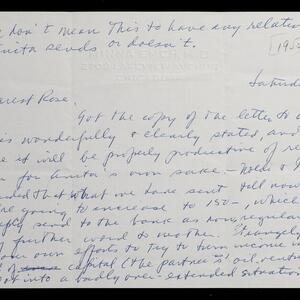 don't mean This to have any relatio
sends or doesn't.
195
Saturda
arest Rose,
Got the copy of the letter to
is wonderfully & clearly stated, and
it will be properly productive of re
for Anita's own sake –
that what we have sent till now
going to increase to 150–, which
send to the bank as now, regular
further word to mother. Strangely
our own efforts to try to turn income in
of capital (the partner is) oil, rent
into a badly over-extended situation